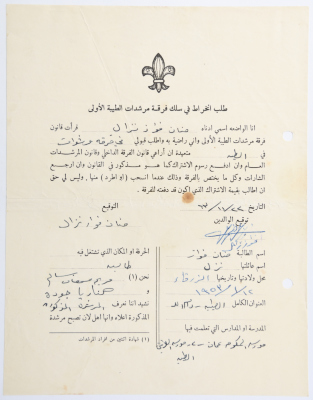 طلب انخراط في سلك فرقة مرشدات الطيبة الأولى
انا الواضعه اسمي ادناه حنان فواز نزال قرأت قانون
فرقة مرشدات الطيبة الأولى واني راضية به واطلب قبولي مرشدات
في الطيبه متعهدة ان أراعي قانون الفرقة الداخلي وقانون المرشدات
العام وان ادفع رسوم الاشتراك كما هو مذكور في القانون وان ارجع
الشارات وكل ما يختص بالفرقة وذلك عندما انسحب ( او اطرد ) منها . وليس لي حق
ان اطالب بقيمة الاشتراك الذي اكون قد دفعته للفرقة .
التاريخ
التوقيع
حنان فواز نزال
توقيع الوالدين
اسم الطالبة حنان فواز
اسم عائلتها نزال
محل ولادتها وتاريخها الزرقاء
العنوان الكامل الطيبه
المدرسة او المدارس التي تعلمت فيها
الطيبه
الحرفة او المكان الذي تشتغل فيه
طالبه
نحن (١) مريم
و
نشهد اننا نعرف المرشحة المذكوره
المذكورة اعلاه وانها اهل لان تصبح مرشدة
(١) شهادة اثنين من افراد المرشدات